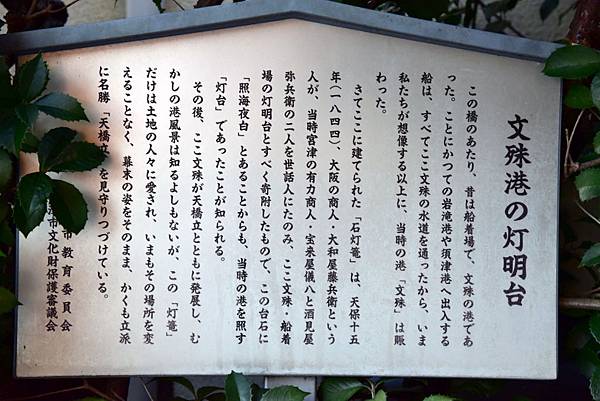 文殊港の灯明台
この橋のあたり、昔は船着場で、文殊の港であ
った。ことにかつての岩滝港や須津港へ出入する
船は、すべてここ文殊の水道を通ったから、いま
私たちが想像する以上に、当時の港「文殊」は賑
わった。
さてここに建てられた「石灯篭」は、天保十五
年(一八四四)、大阪の商人・大和屋藤兵衛という
人が、当時宮津の有力商人・宝来屋儀八と酒見屋
弥兵衛の二人を世話人にたのみ、ここ文殊・船着
場の灯明台とすべく寄附したもので、この台石に
「照海夜白」とあることからも、当時の港を照す
「灯台」であったことが知られる。
その後、ここ文殊が天橋立とともに発展し、む
かしの港風景は知るよしもないが、この「灯篭」
だけは土地の人々に愛され、いまもその場所を変
えることなく、幕末の姿をそのまま、かくも立派
に名勝「天橋立」を見守りつづけている。
市教育委員会
市文化財保護審議会